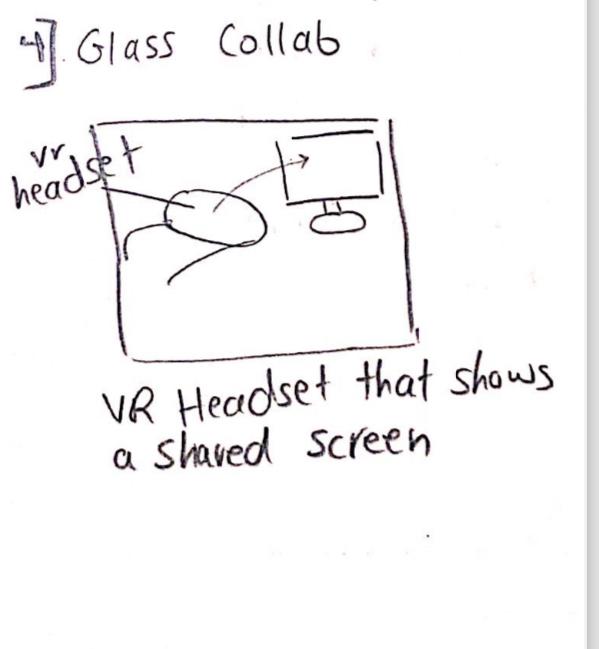 4]. Glass Collab
vr
headset
VR Headset that shows
a shared screen